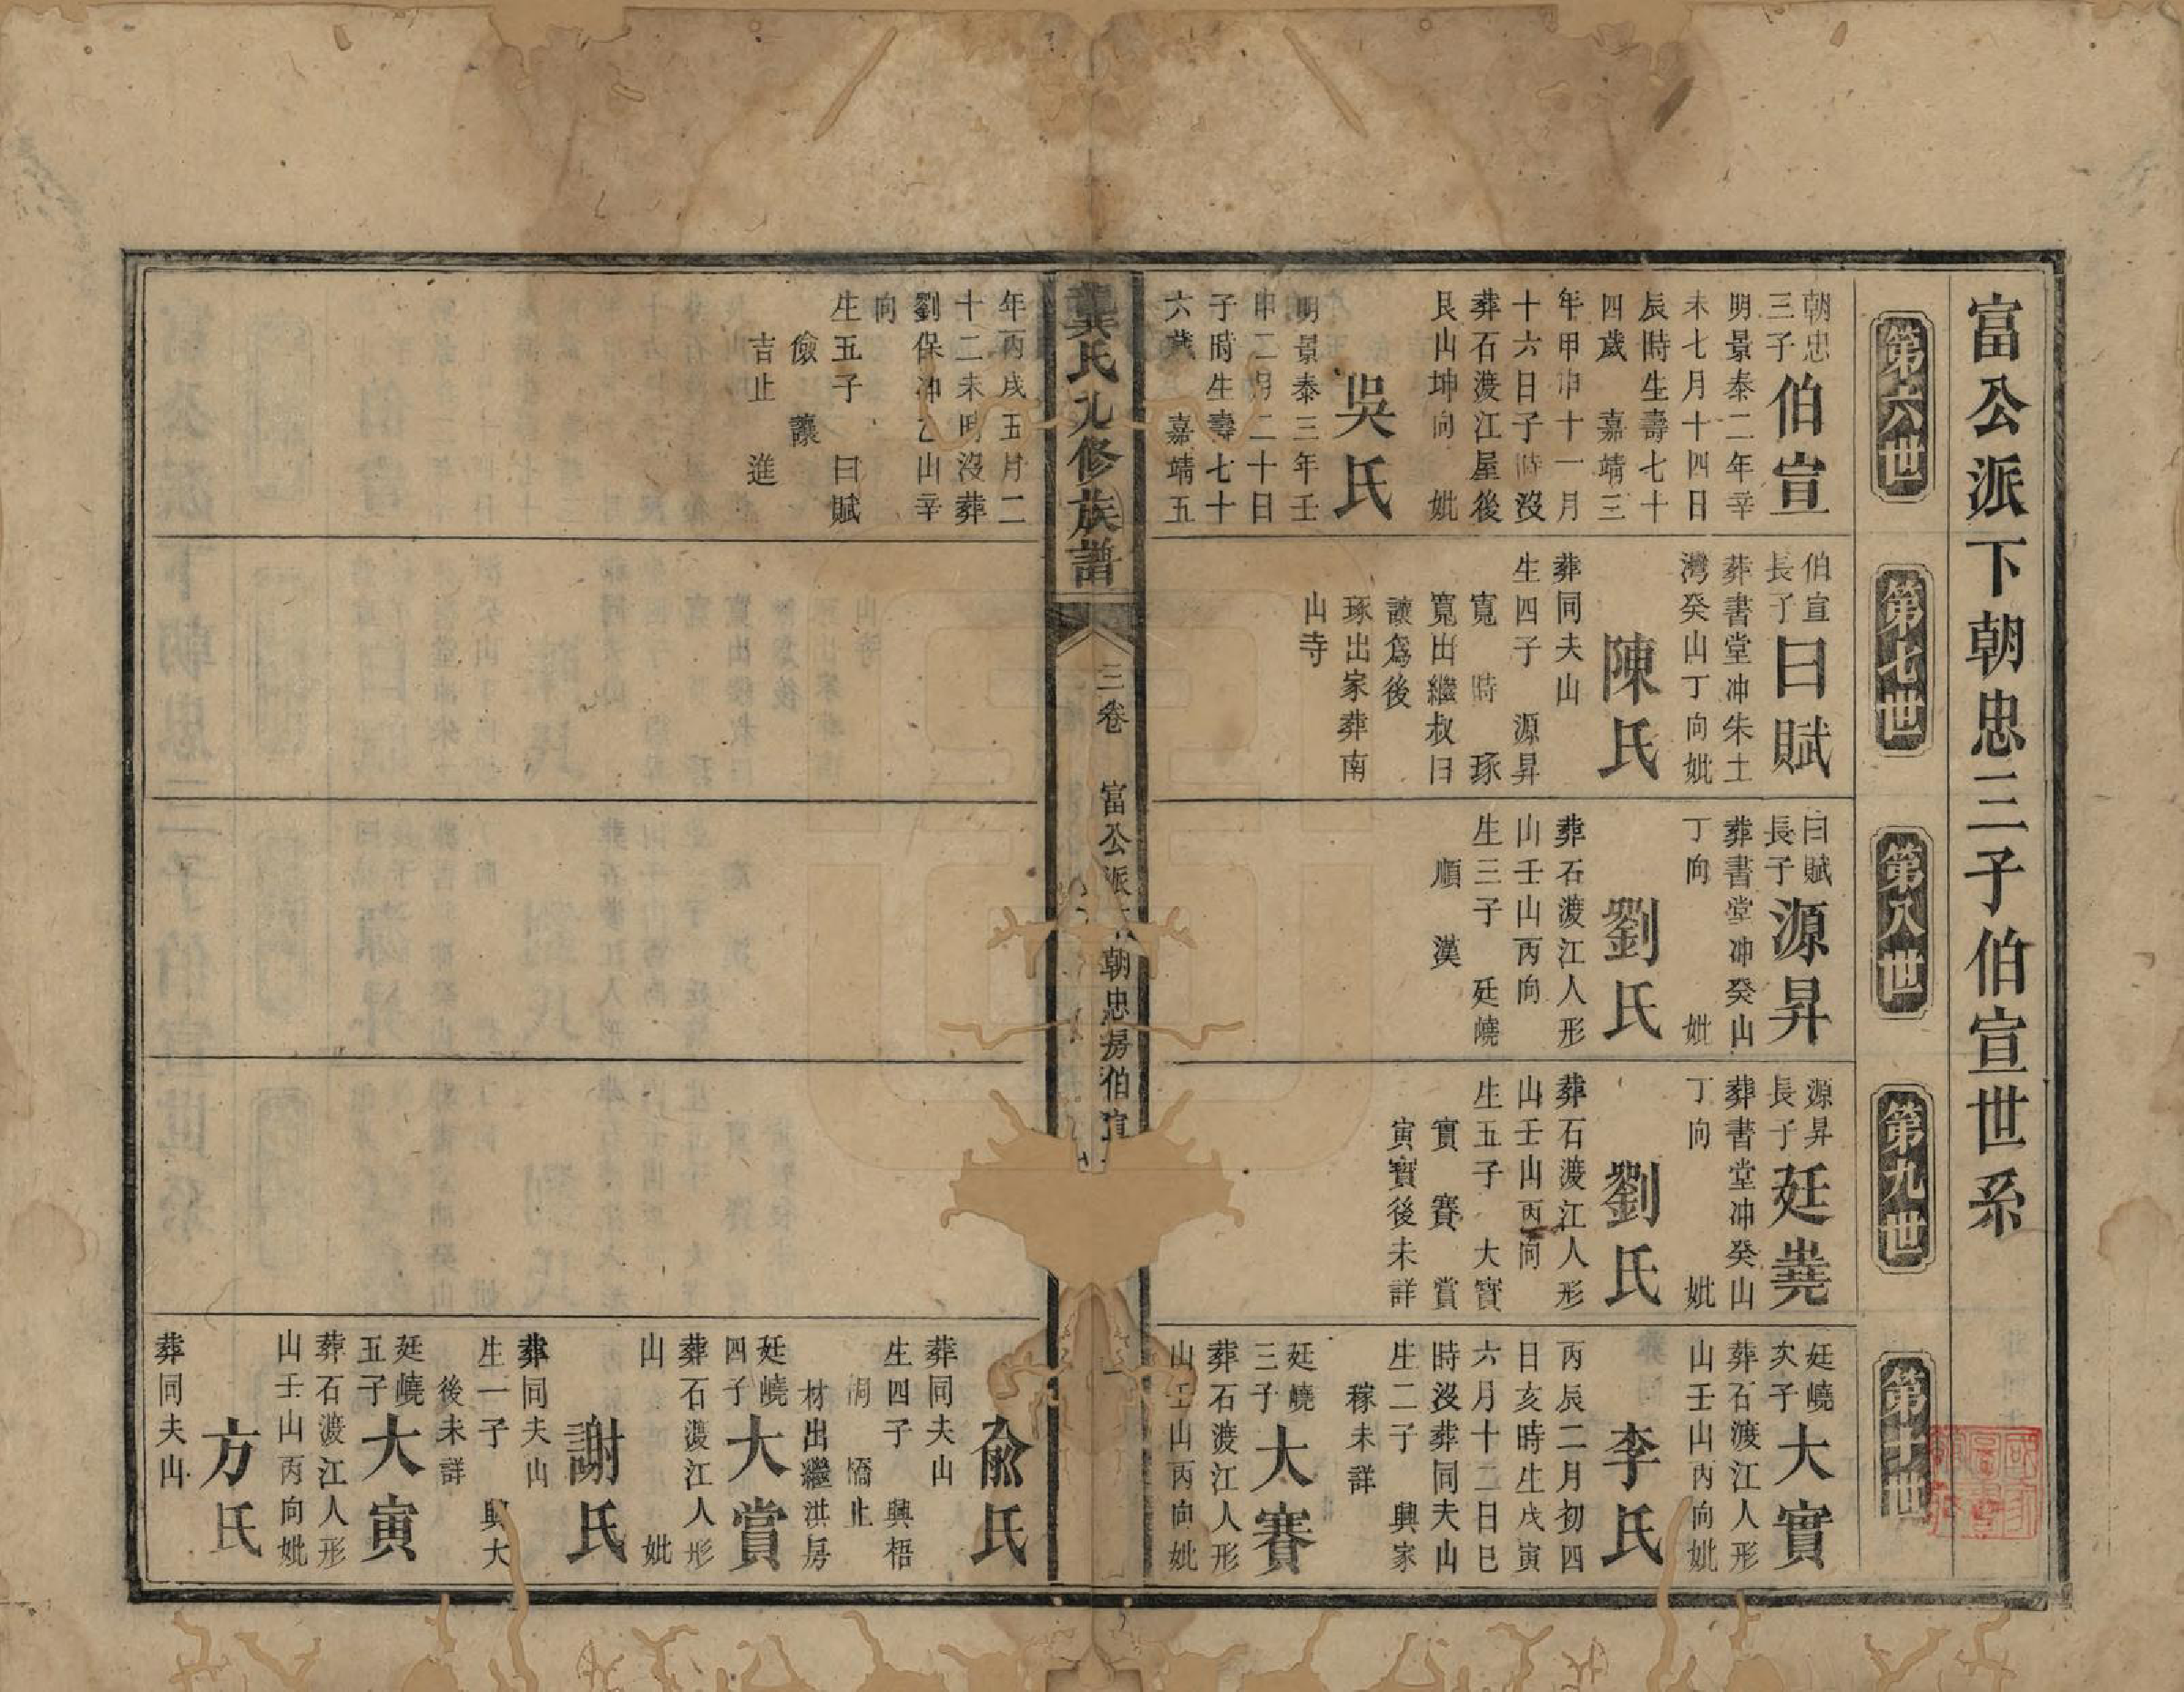 富公派下朝忠三子伯宣世系
第六世
第七世
第八世
第九世
第十世
朝忠
三子
伯宣
明景泰二年辛
未七月十四日
辰時生壽七十
四歲 嘉靖三
年甲申十一月
十六日子時沒
葬石渡江屋後
艮山坤向 妣
吳氏
明景泰三年壬
申二月二十日
子時生壽七十
六歲 嘉靖五
年丙戌五月二
十二未時沒葬
劉保冲乙山辛
向
生五子 曰賦
儉 讓
吉止 進
伯宣
長子
曰賦
葬書堂冲朱土
灣癸山丁向妣
陳氏
葬同夫山
生四子 源昇
寬 時 琢
寬出繼叔曰
讓爲後
琢出家葬南
山寺
曰賦
長子
源昇
葬書堂冲癸山
丁向 妣
劉氏
葬石渡江人形
山壬山丙向
生三子 廷嶢
順 漢
源昇
長子
廷嶤
葬書堂冲癸山
丁向 妣
劉氏
葬石渡江人形
山壬山丙向
生五子 大寶
實 賽 賞
寅寶後未詳
廷嶢
次子
大實
葬石渡江人形
山壬山丙向妣
李氏
丙辰二月初四
日亥時生戊寅
六月十二日巳
時沒葬同夫山
生二子 興家
稼未詳
廷嶢
三子
大賽
葬石渡江人形
山壬山丙向妣
俞氏
葬同夫山
生四子 興梧
桐 橋止
材出繼洪房
廷嶢
四子
大賞
葬石渡江人形
山 妣
謝氏
葬同夫山
生一子 興大
後未詳
廷嶢
五子
大寅
葬石渡江人形
山壬山丙向妣
方氏
葬同夫山
龔氏九修族譜
三卷
富公派
朝忠房伯宣